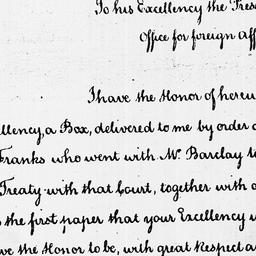 To his Excellency the Pres
Office for foreign Aff
I have the Honor of hereu
llency, a Box, delivered to me by order o
Franks who went with Mr. Barclay t
Treaty with that Court, together with a
the first paper that your Excellency w
ve the Honor to be, with great Respect a